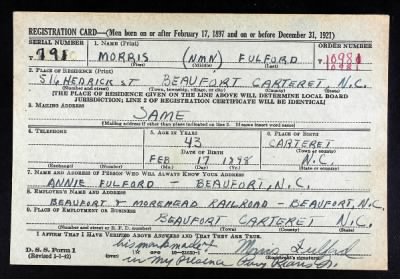 REGISTRATION CARD—(Men born on or after February 17, 1897 and on or before December 31, 1921)
SERIAL NUMBER 1. NAME (Print) ORDER NUMBER
T. 791 MORRIS (NMN) FULFORD T 10981
(First) (Middle) (Last) 10981
2. PLACE OF RESIDENCE (Print)
516 HEDRICK ST BEAUFORT CARTERET N.C.
(Number and street) (Town, township, village, or city) (County) (State)
[THE PLACE OF RESIDENCE GIVEN ON THE LINE ABOVE WILL DETERMINE LOCAL BOARD
JURISDICTION; LINE 2 OF REGISTRATION CERTIFICATE WILL BE IDENTICAL]
3. MAILING ADDRESS
SAME
[Mailing address if other than place indicated on line 2. If same insert word same]
4. TELEPHONE 5. AGE IN YEARS 6. PLACE OF BIRTH
43 CARTERET
DATE OF BIRTH (Town or county)
FEB 17 1898 N.C.
(Exchange) (Number) (Mo.) (Day) (Yr.) (State or country)
7. NAME AND ADDRESS OF PERSON WHO WILL ALWAYS KNOW YOUR ADDRESS
ANNIE FULFORD - BEAUFORT, N.C.
8. EMPLOYER'S NAME AND ADDRESS
BEAUFORT & MOREHEAD RAILROAD - BEAUFORT, N.C.
9. PLACE OF EMPLOYMENT OR BUSINESS
BEAUFORT CARTERET N.C.
(Number and street or R. F. D. number) (Town) (County) (State)
I AFFIRM THAT I HAVE VERIFIED ABOVE ANSWERS AND THAT THEY ARE TRUE.
his mark made Morris Fulford
D. S. S. Form 1 (Registrant's signature)
(Revised 1-1-42) in My Presence